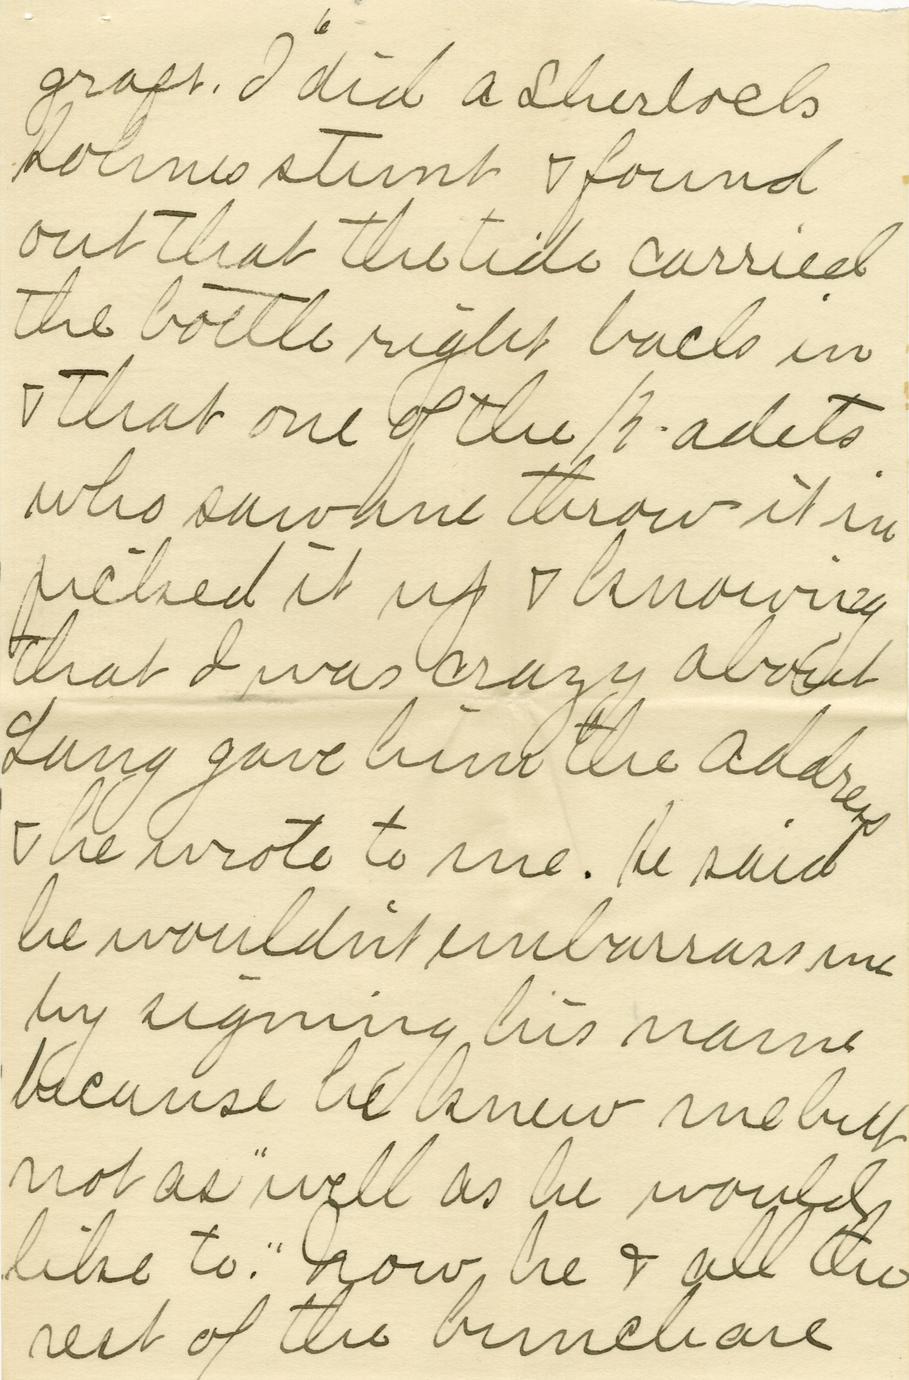 6
graft. I did a Sherlock
Holmes stunt & found
out that the tide carried
the bottle right back in
& that one of the K-adets
who saw me throw it in
picked it up & knowing
that I was crazy about
Lang gave him the address
& he wrote to me. He said
he wouldn't embarrass me
by signing his name
because he knew me but
not as "well as he would
like to." Now he & all the
rest of the bunch are